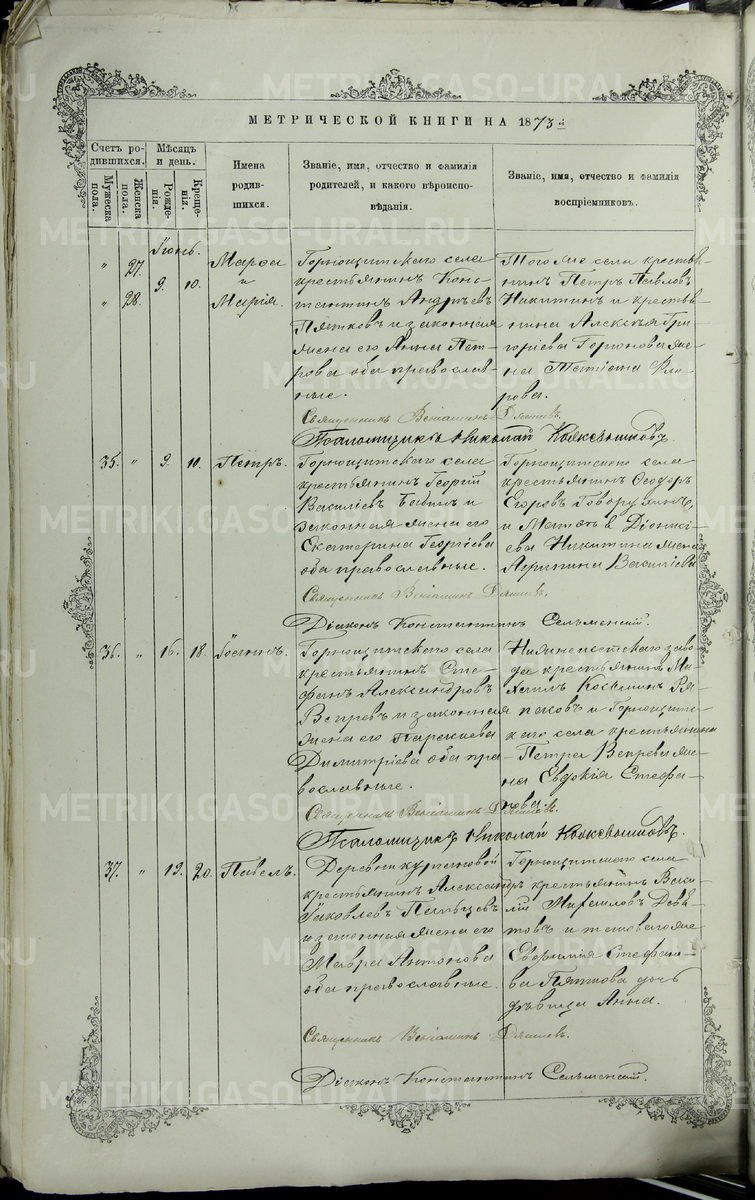 МЕТРИЧЕСКОЙ КНИГИ НА 1873й
Счетъ ро-
дившихся.
Мужеска
пола.
Женска
пола.
Мѣсяцъ
и день.
Рожде-
нія.
Креще-
нія.
Имена
родив-
шихся.
Званіе, имя, отчество и фамилія
родителей, и какого вѣроиспо-
вѣданія.
Званіе, имя, отчество и фамилія
воспріемниковъ.
Іюнь.
" 27.
" 28.
9. 10.
Марѳа
и
Марія.
Горнощитскаго села
крестьянинъ Конс-
тантинъ Андреевъ
Пятковъ и законная
жена его Анна Пет-
рова оба православ-
ные.
Того же села крестья-
нинъ Петръ Павловъ
Никитинъ и крестья-
нина Алексѣя Гри-
горіева Горюнова же-
на Татіана Фло-
рова.
Священникъ Веніаминъ
Псаломщикъ Николай
35. " 9. 10. Петръ.
Горнощитскаго села
крестьянинъ Георгій
Василіевъ Бабинъ и
законная жена его
Екатерина Георгіева
оба православные.
Горнощитскаго села
крестьянинъ Ѳеодоръ
Егоровъ
и Матѳея Діонисі-
ева Никитина жена
Агрипина Василіева
Священникъ Веніаминъ
Діаконъ Константинъ
36. " 16. 18. Іоаннъ.
Горнощитскаго села
крестьянинъ Сте-
фанъ Александровъ
Вепревъ и законная
жена его Параскева
Димитріева оба пра-
вославные.
Нижнеисетскаго заво-
да крестьянинъ Ми-
хаилъ Косьминъ Ря-
паковъ и Горнощитс-
каго села крестьянина
Петра Вепрева же-
на Евдокія Стефа-
нова.
Священникъ Веніаминъ
Псаломщикъ Николай
37. " 19. 20. Павелъ.
Деревни Кургановой
крестьянинъ Александръ
Іаковлевъ
и законная жена его
Мавра Антонова
оба православные.
Горнощитскаго села
крестьянинъ Васи-
лій Михаиловъ
товъ и таковаго же
Евѳимія Стефано-
ва Пяткова дочь
дѣвица Анна.
Священникъ Веніаминъ
Діаконъ Константинъ
METRIKI.GASO-URAL.RU